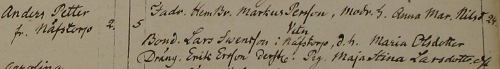 Anders Petter
fr. Näfstorp 2. 5
Fadr. Hem.Br. Markus Person, Modr. h. Anna Mar. Nilsd. 24
Bond. Lars Swensson i Näfstorp, d. h. Maria Olsdotter
Dräng. Erik Erson derst. Pig. Maja Stina Larsdotter
Carolina